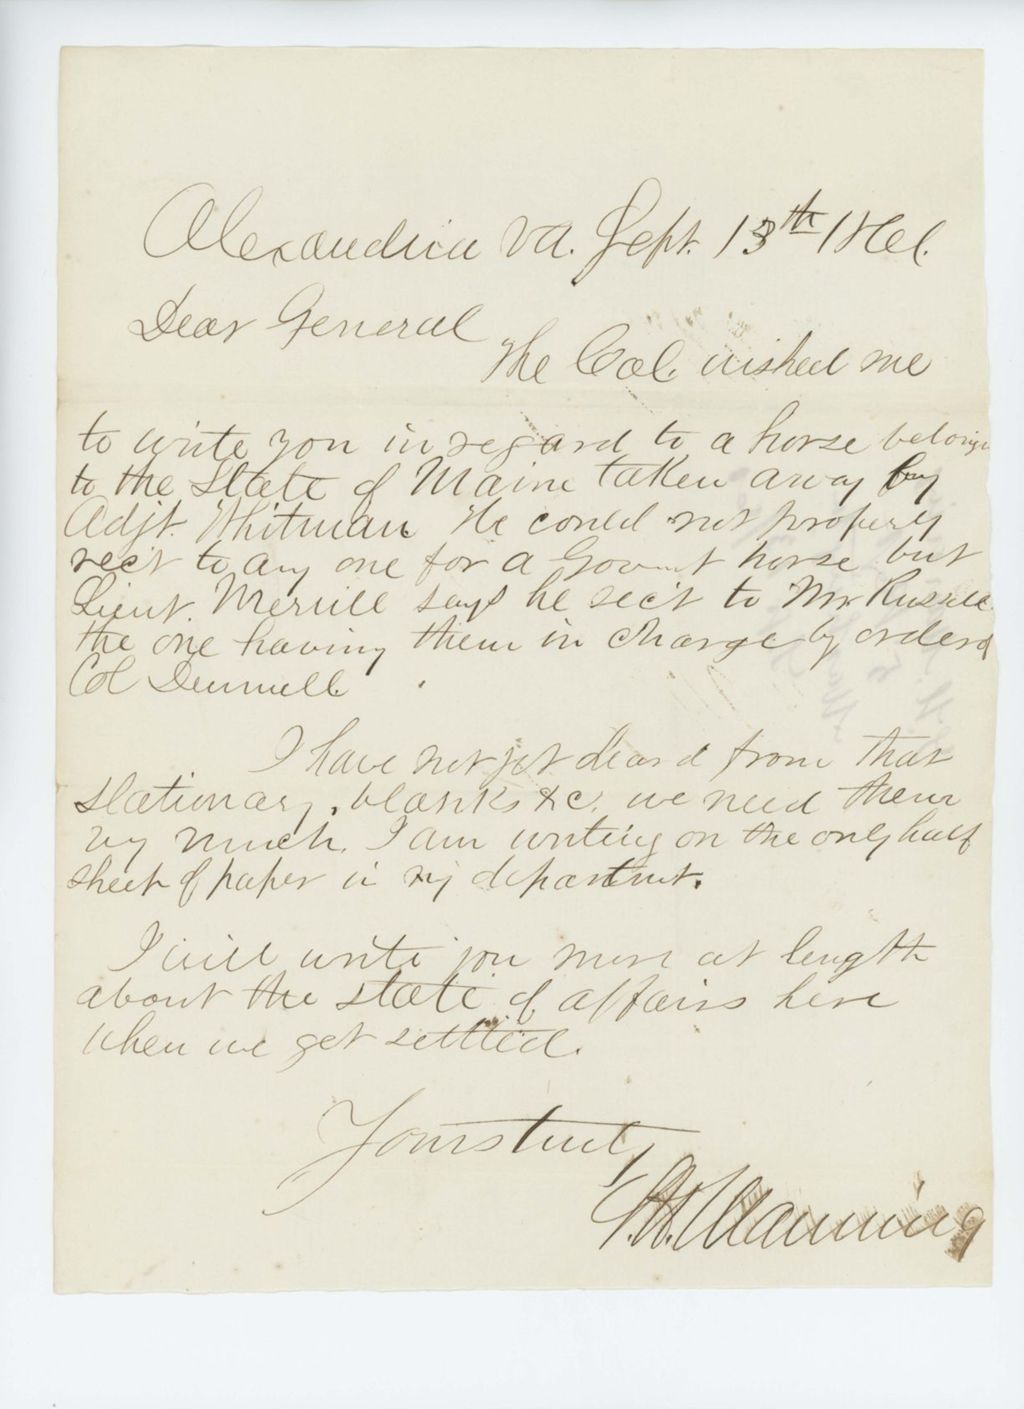 Alexandria Va. Sept. 13th 1861.
Dear General
The Col. wished me
to write you in regard to a horse belongin
to the State of Maine taken away by
Adjt. Whitman He could not properly
rec't to any one for a Govmt horse but
Lieut. Merrill says he rec't to Mr Russell
the one having them in charge by order of
Col Dunnell
I have not yet heard from that
stationary, blanks &c. we need them
vy much. I am writing on the only half
sheet of paper in my department.
I will write you more at length
about the state of affairs here
when we get settled.
Yours truly,
Manning